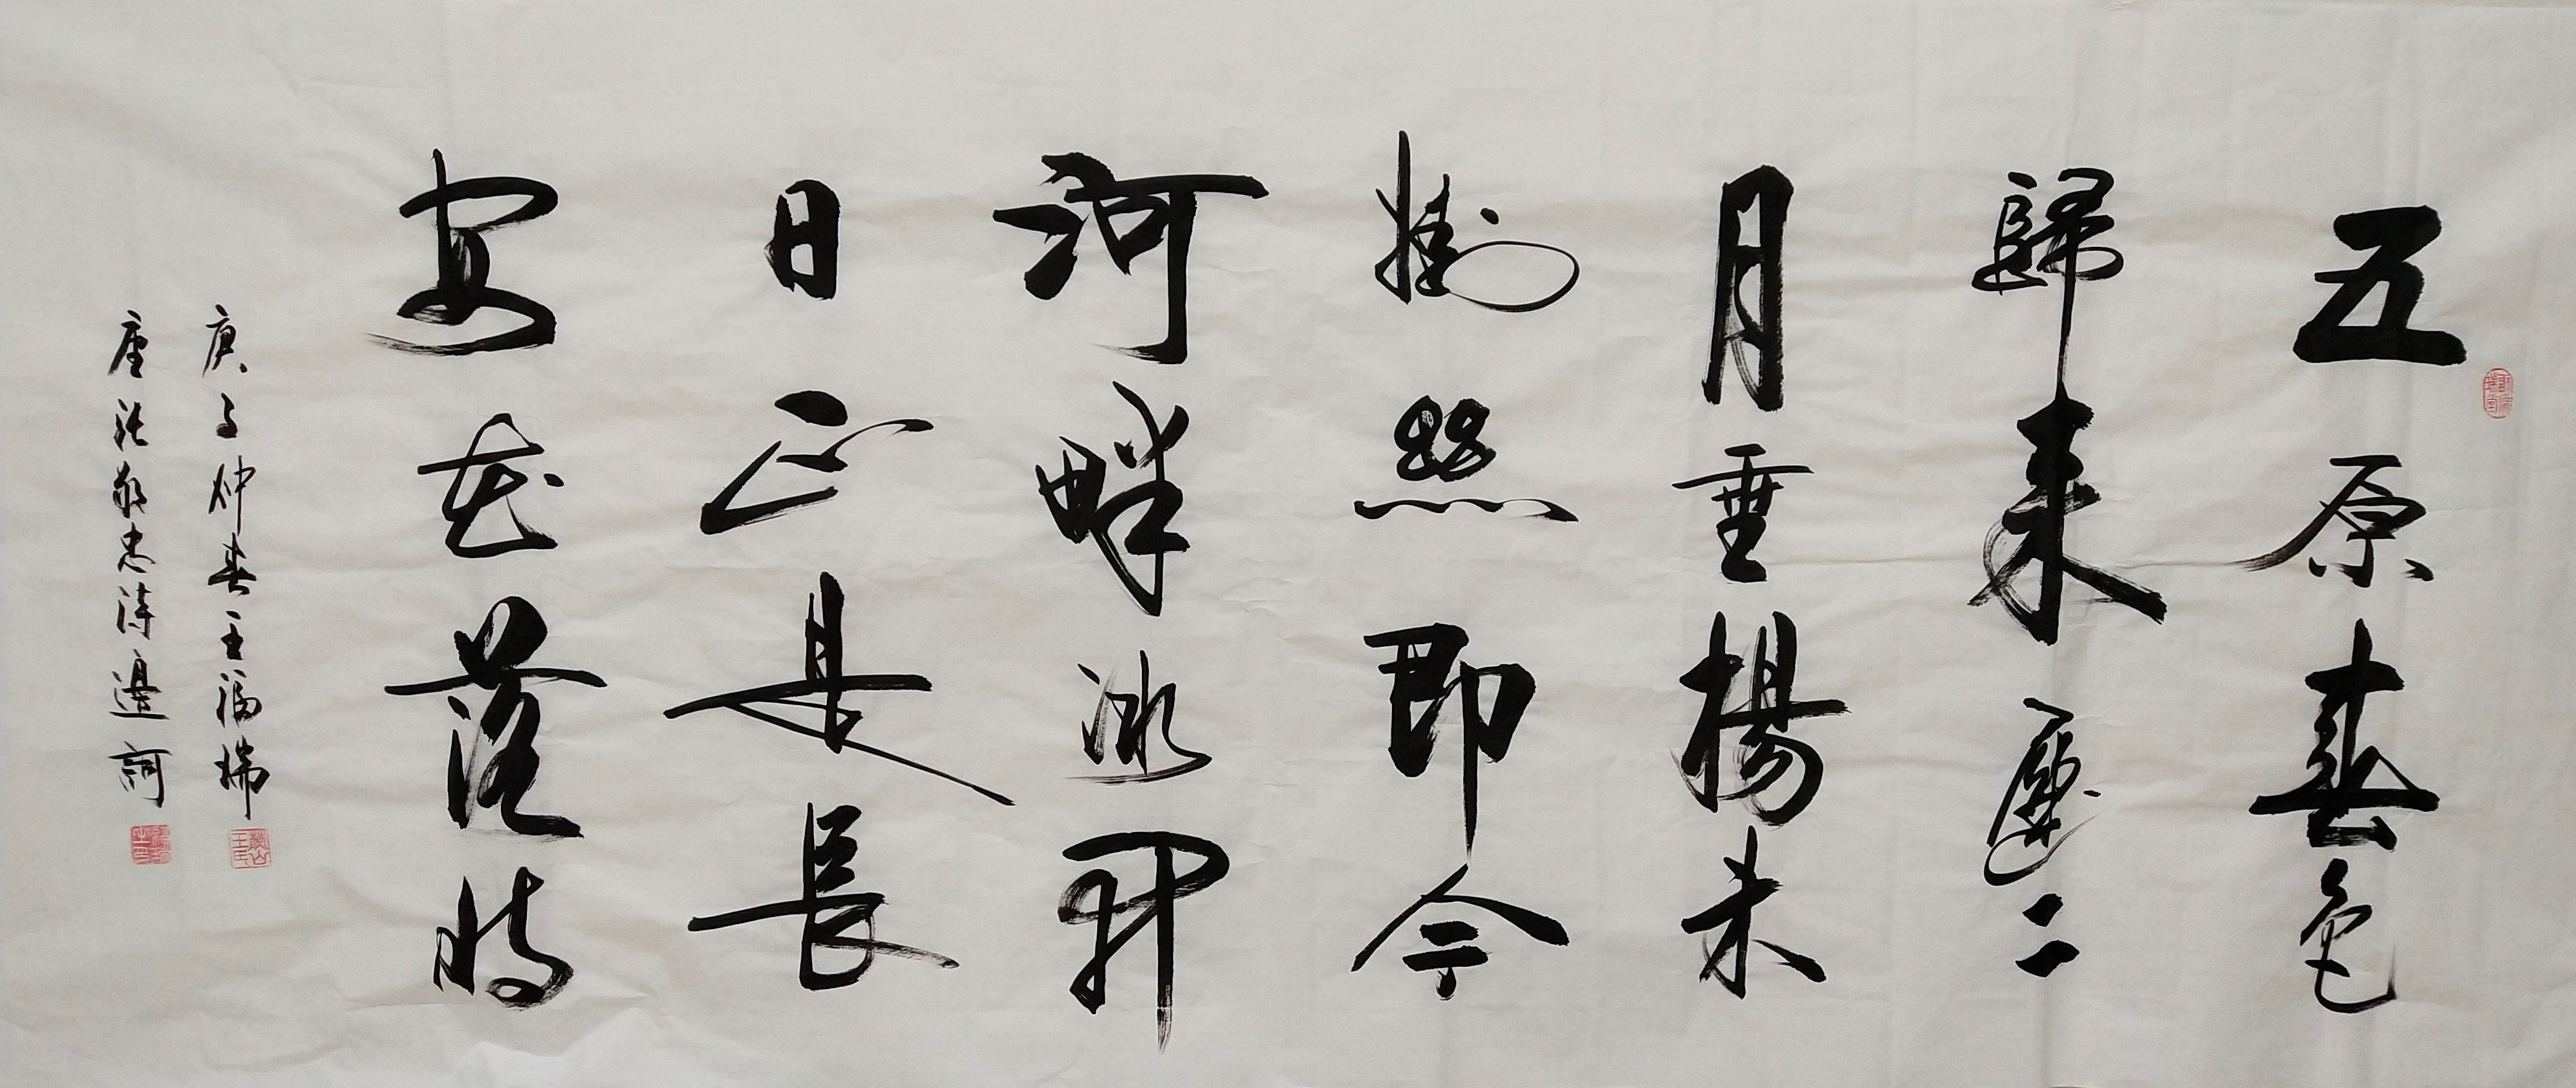 五原春色
歸来遲二
月垂楊未
掛絲即今
河畔冰開
日正是長
安花落時
庚子仲春王福瑞
唐張敬忠詩邊詞